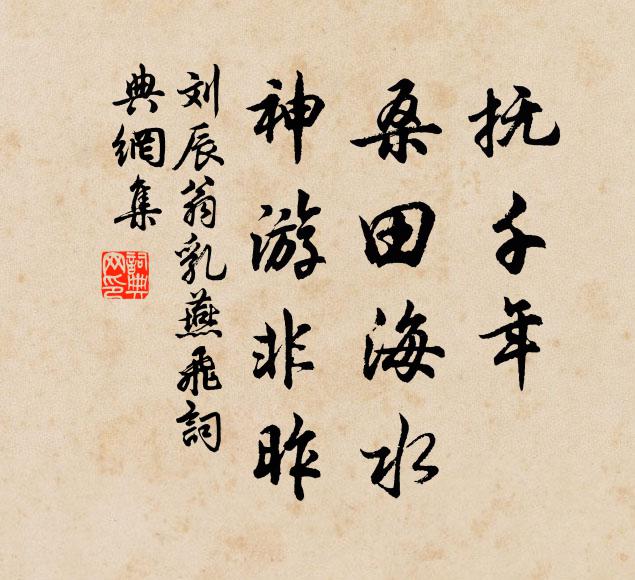 抚千年
桑田海水
神游非昨
刘辰翁乳燕飛詞
典網集
詞典網印